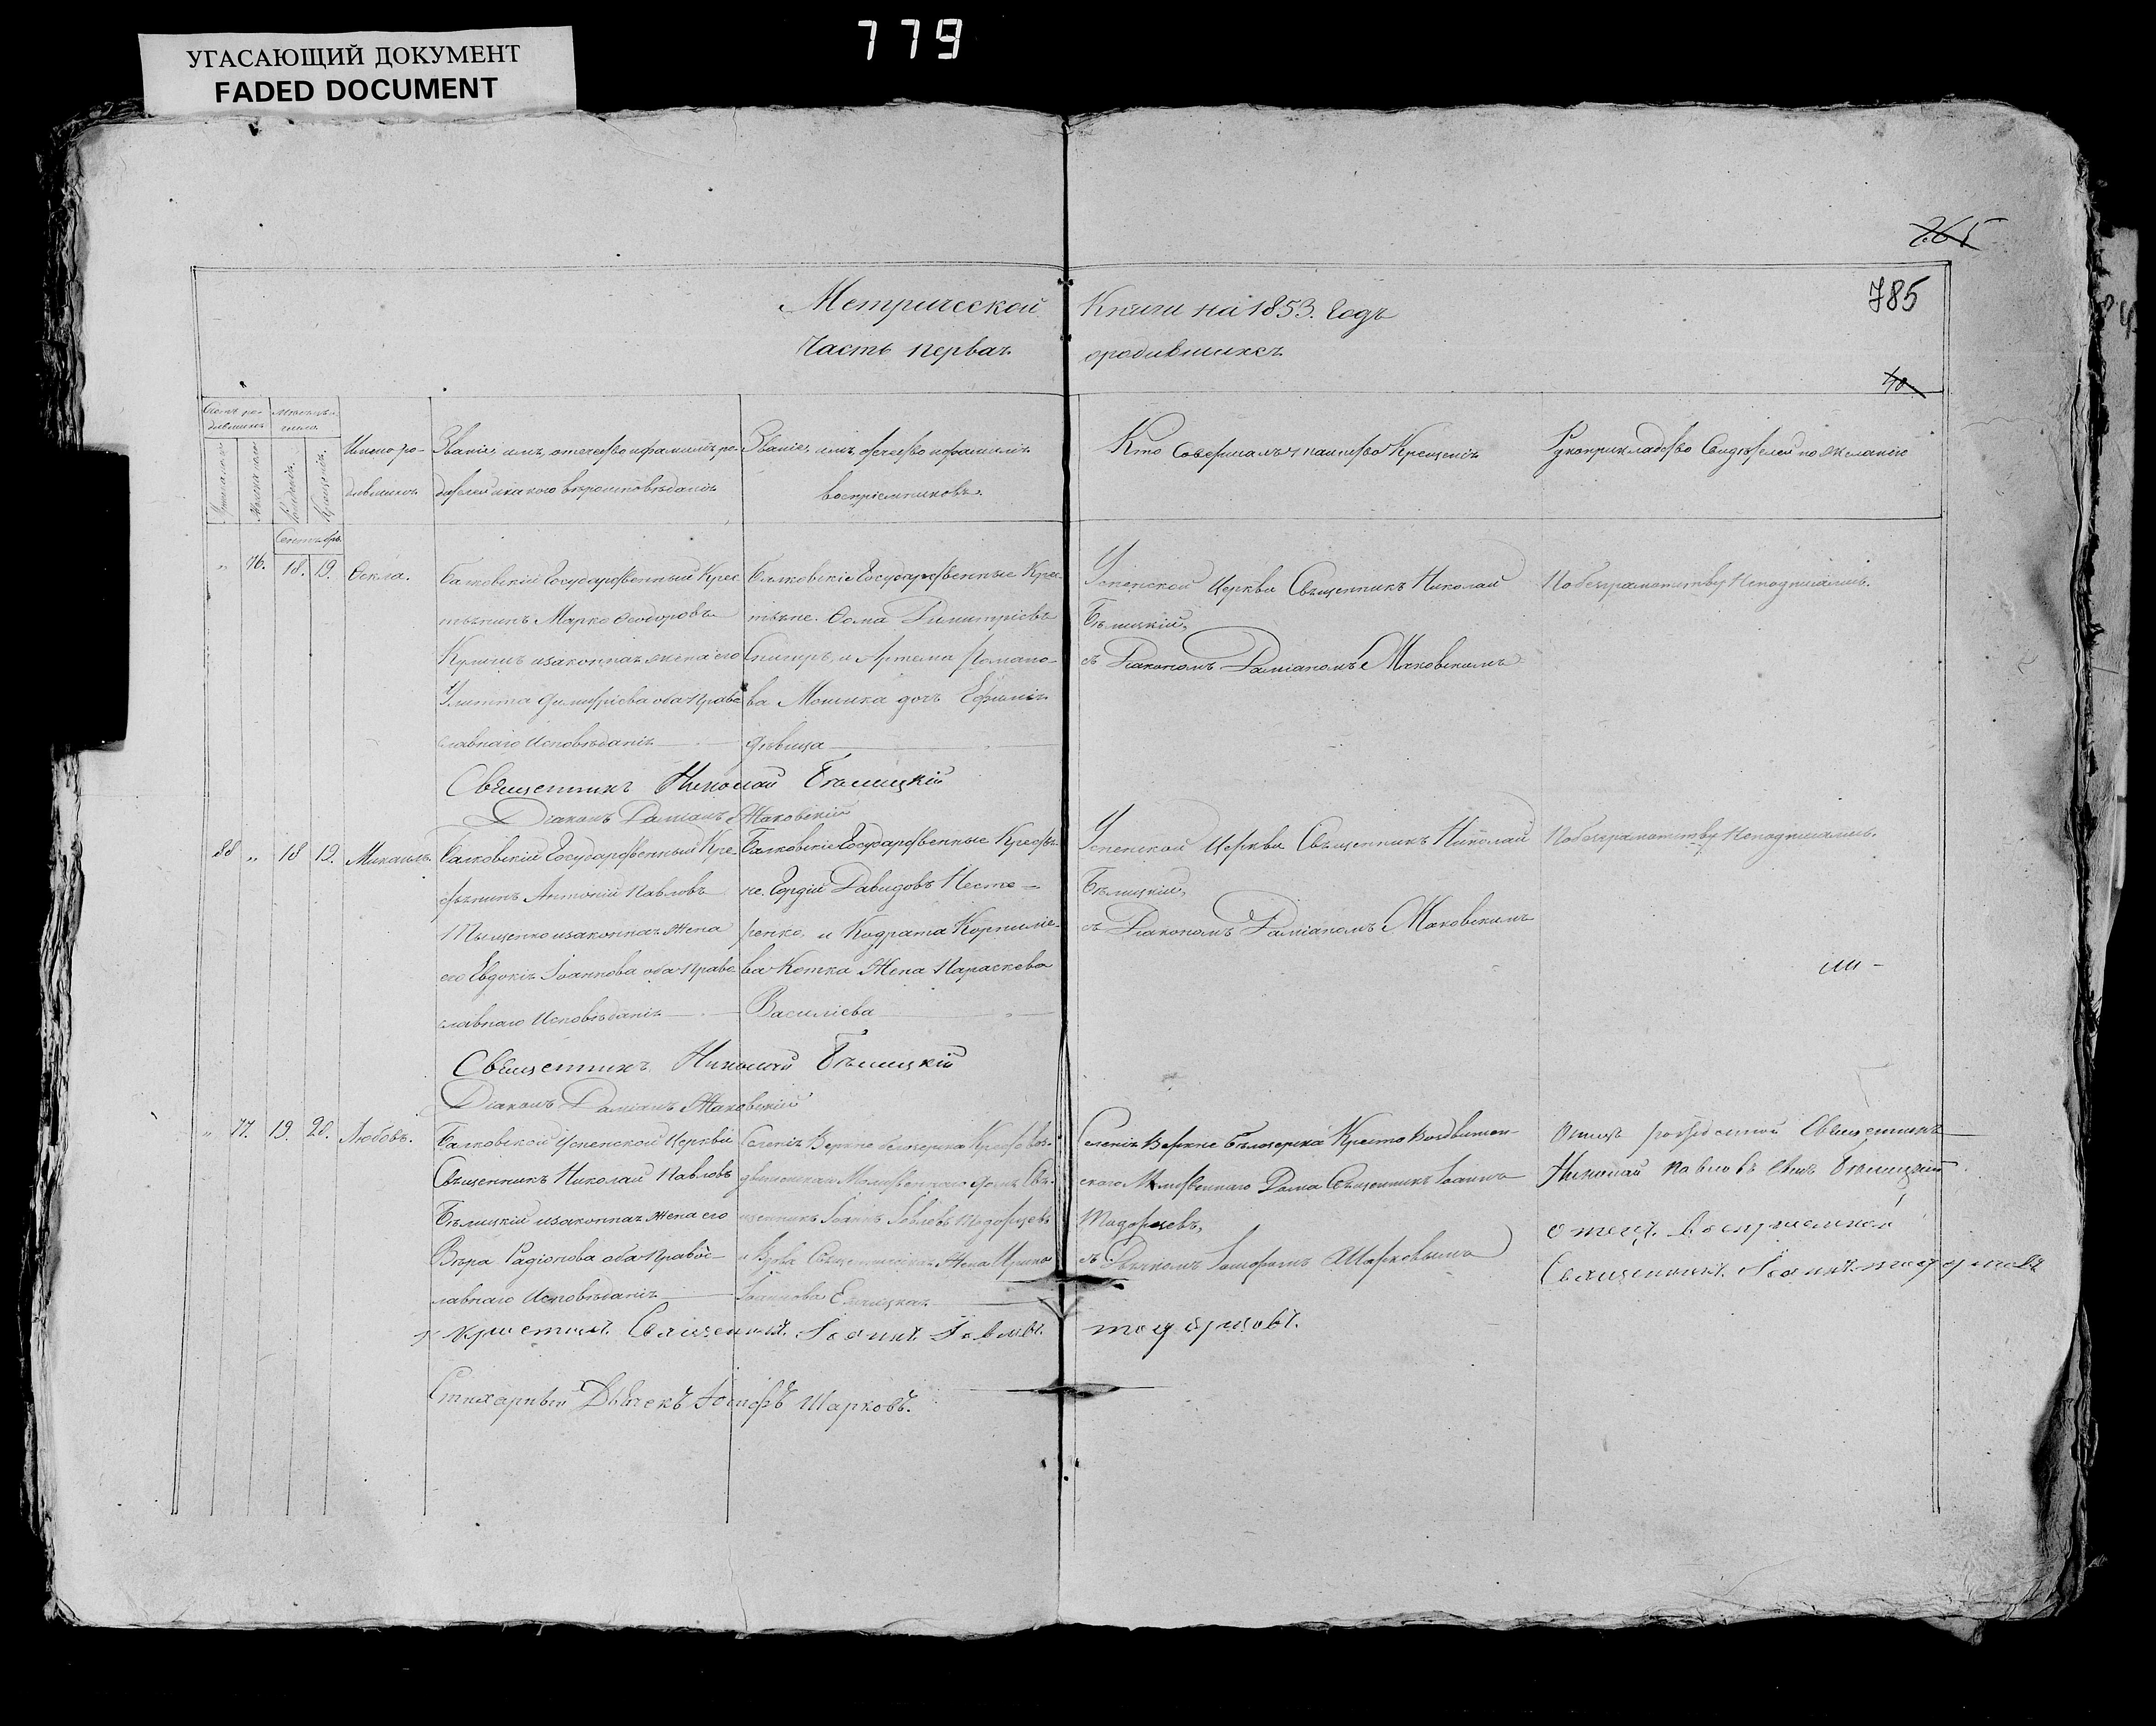 779
УГАСАЮЩИЙ ДОКУМЕНТ
FADED DOCUMENT
265
785
Метрической Книги на 1853. Годъ
Часть первая о родившихся
40
Мѣсяцъ и число.
Рожденія.
Крещенія.
Имена родившихся
Званіе, имя, отчество и фамилія родителей и какого вѣроисповѣданія
Званіе, имя, отчество и фамилія воспріемниковъ.
Кто совершалъ таинство Крещенія
Рукоприкладство Свидѣтелей по желанію
Сентябрь
" 76. 18. 19. Ѳекла.
Балковскій Государственный Крес
тьянинъ Марко Ѳеодоровъ
и законная жена его
Улитта Димитріева оба Право
славнаго Исповѣданія
Балковскіе Государственные Крес
тьяне. Ѳома Димитріевъ
Снигиръ, и Артема Романо-
ва Мошика дочь Евфимія
дѣвица
Успенской Церкви Священникъ Николай
Бѣлицкій,
съ Діакономъ Даміаномъ Маковскимъ
По безграмотству Неподписались.
Священникъ Николай Бѣлицкій
Діаконъ Даміанъ Маковскій
88 " 18 19. Михаилъ.
Балковскій Государственный Кре
стьянинъ Антоній Павловъ
Тыщенко и законная Жена
его Евдокія Іоаннова оба Право
славнаго Исповѣданія
Балковскіе Государственные Крестья
не. Гордій Давидовъ Несте-
ренко, и Кодрата Корниліе-
ва Котка Жена Параскева
Василіева
Успенской Церкви Священникъ Николай
Бѣлицкій,
съ Діакономъ Даміаномъ Маковскимъ
По безграмотству Неподписались.
Священникъ Николай Бѣлицкій
Діаконъ Даміанъ Маковскій
" 77. 19. 20. Любовь.
Балковской Успенской Церкви
Священникъ Николай Павловъ
Бѣлицкій и законная Жена его
Вѣра Радіонова оба Правос-
лавнаго Исповѣданія
Селенія Верхне Белозерка Кресто воз-
движенскаго Молитвеннаго дома Свя-
щенникъ Іоаннъ Іовлевъ Тодорцевъ
и Вдова Священническая Жена Ирина
Іоаннова
Селенія Верхне Бѣлозерка Кресто Воздвижен
скаго Молитвеннаго Дома Священникъ Іоаннъ
Тодорцевъ,
съ Дьячкомъ Іосифомъ Шарковымъ
Отецъ рожденной Священникъ
Николай Павловъ Сынъ Бѣлицкій
отецъ воспріемной
Священникъ Іоаннъ Тодорцовъ
Крестилъ Священникъ Іоаннъ Іовлевъ Тодорцовъ.
Стихарный Дьячекъ Іосифъ Шарковъ.